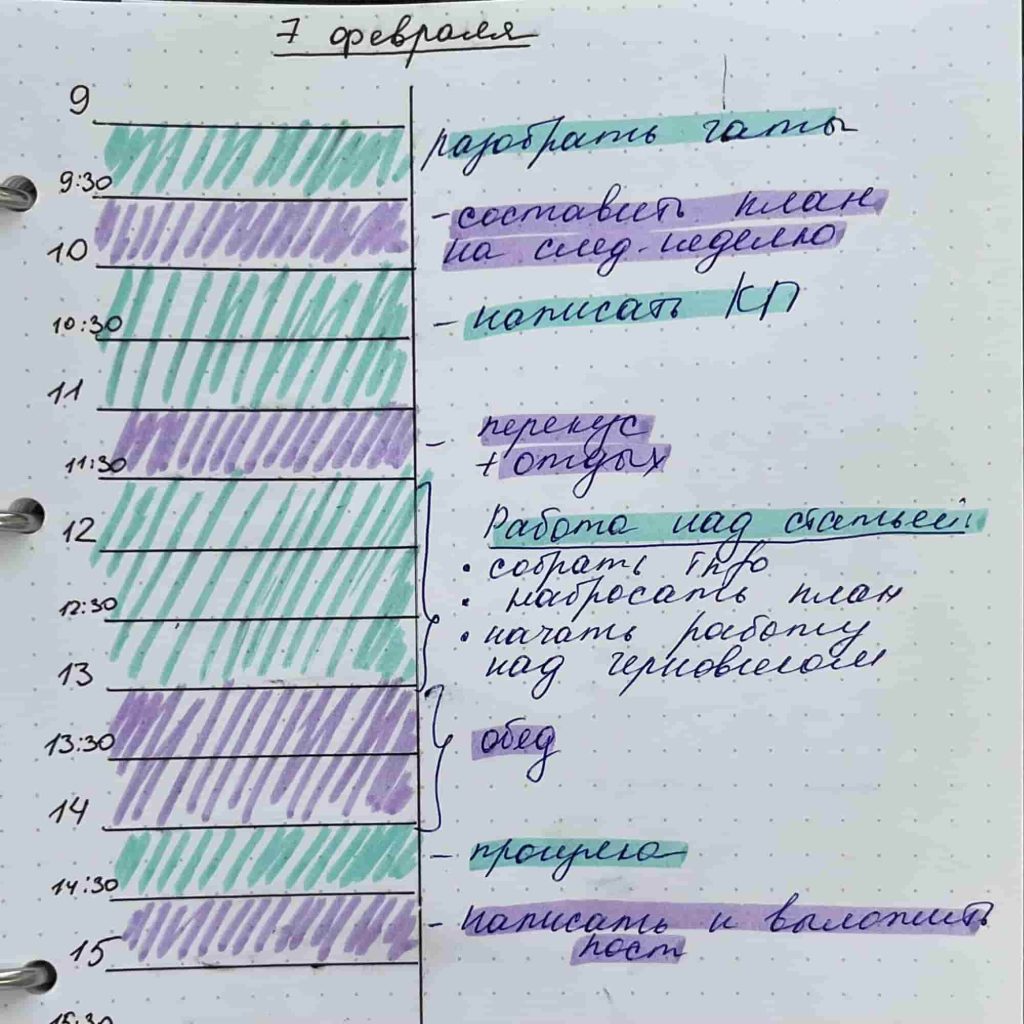 7 февраля
9
разобрать чаты
9:30
- составить план
на след. неделю
10
- написать КП
10:30
11
- перекус
+ отдых
11:30
Работа над статьей:
12
• собрать info
• набросать план
12:30
• начать работу
над черновиком
13
13:30
обед
14
- прогулка
14:30
- написать и выложить
пост
15
15:30